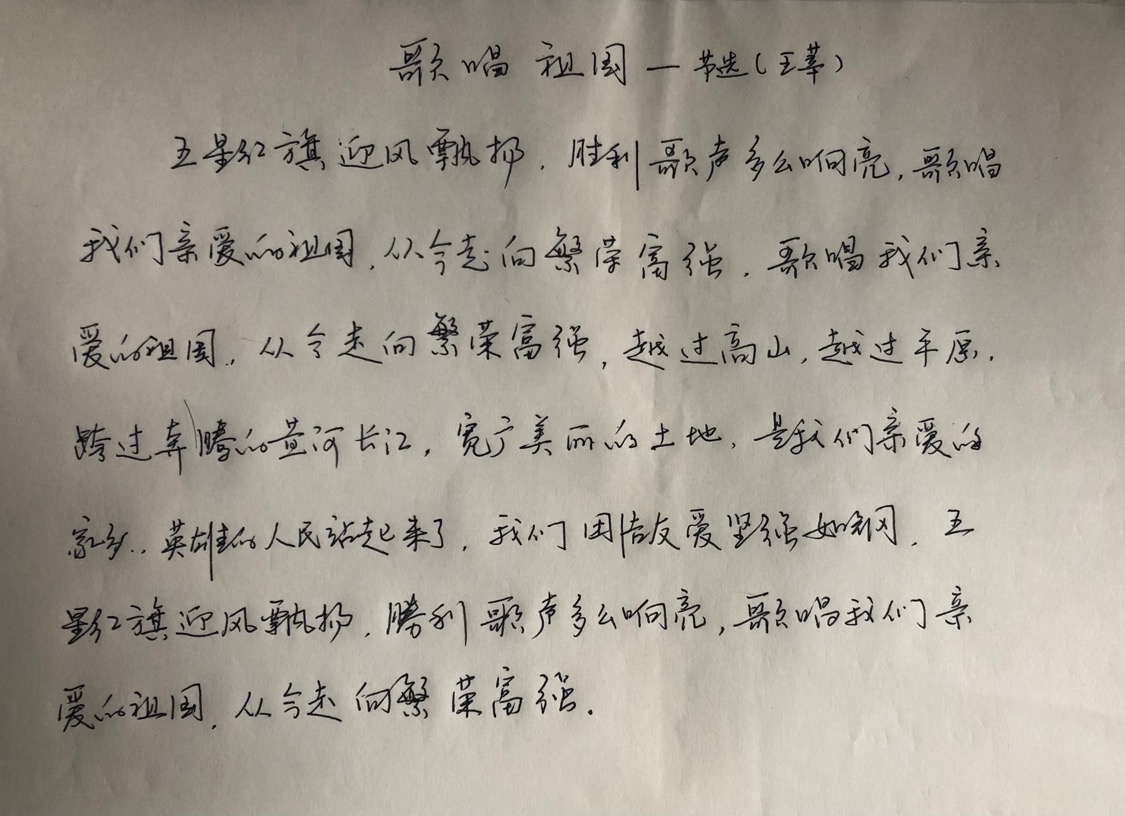 歌唱祖国—节选(王莘)
五星红旗迎风飘扬,胜利歌声多么响亮,歌唱
我们亲爱的祖国,从今走向繁荣富强,歌唱我们亲
爱的祖国,从今走向繁荣富强,越过高山,越过平原,
跨过奔腾的黄河长江,宽广美丽的土地,是我们亲爱的
家乡,英雄的人民站起来了,我们团结友爱坚强如钢,五
星红旗迎风飘扬,勝利歌声多么响亮,歌唱我们亲
爱的祖国,从今走向繁荣富强.